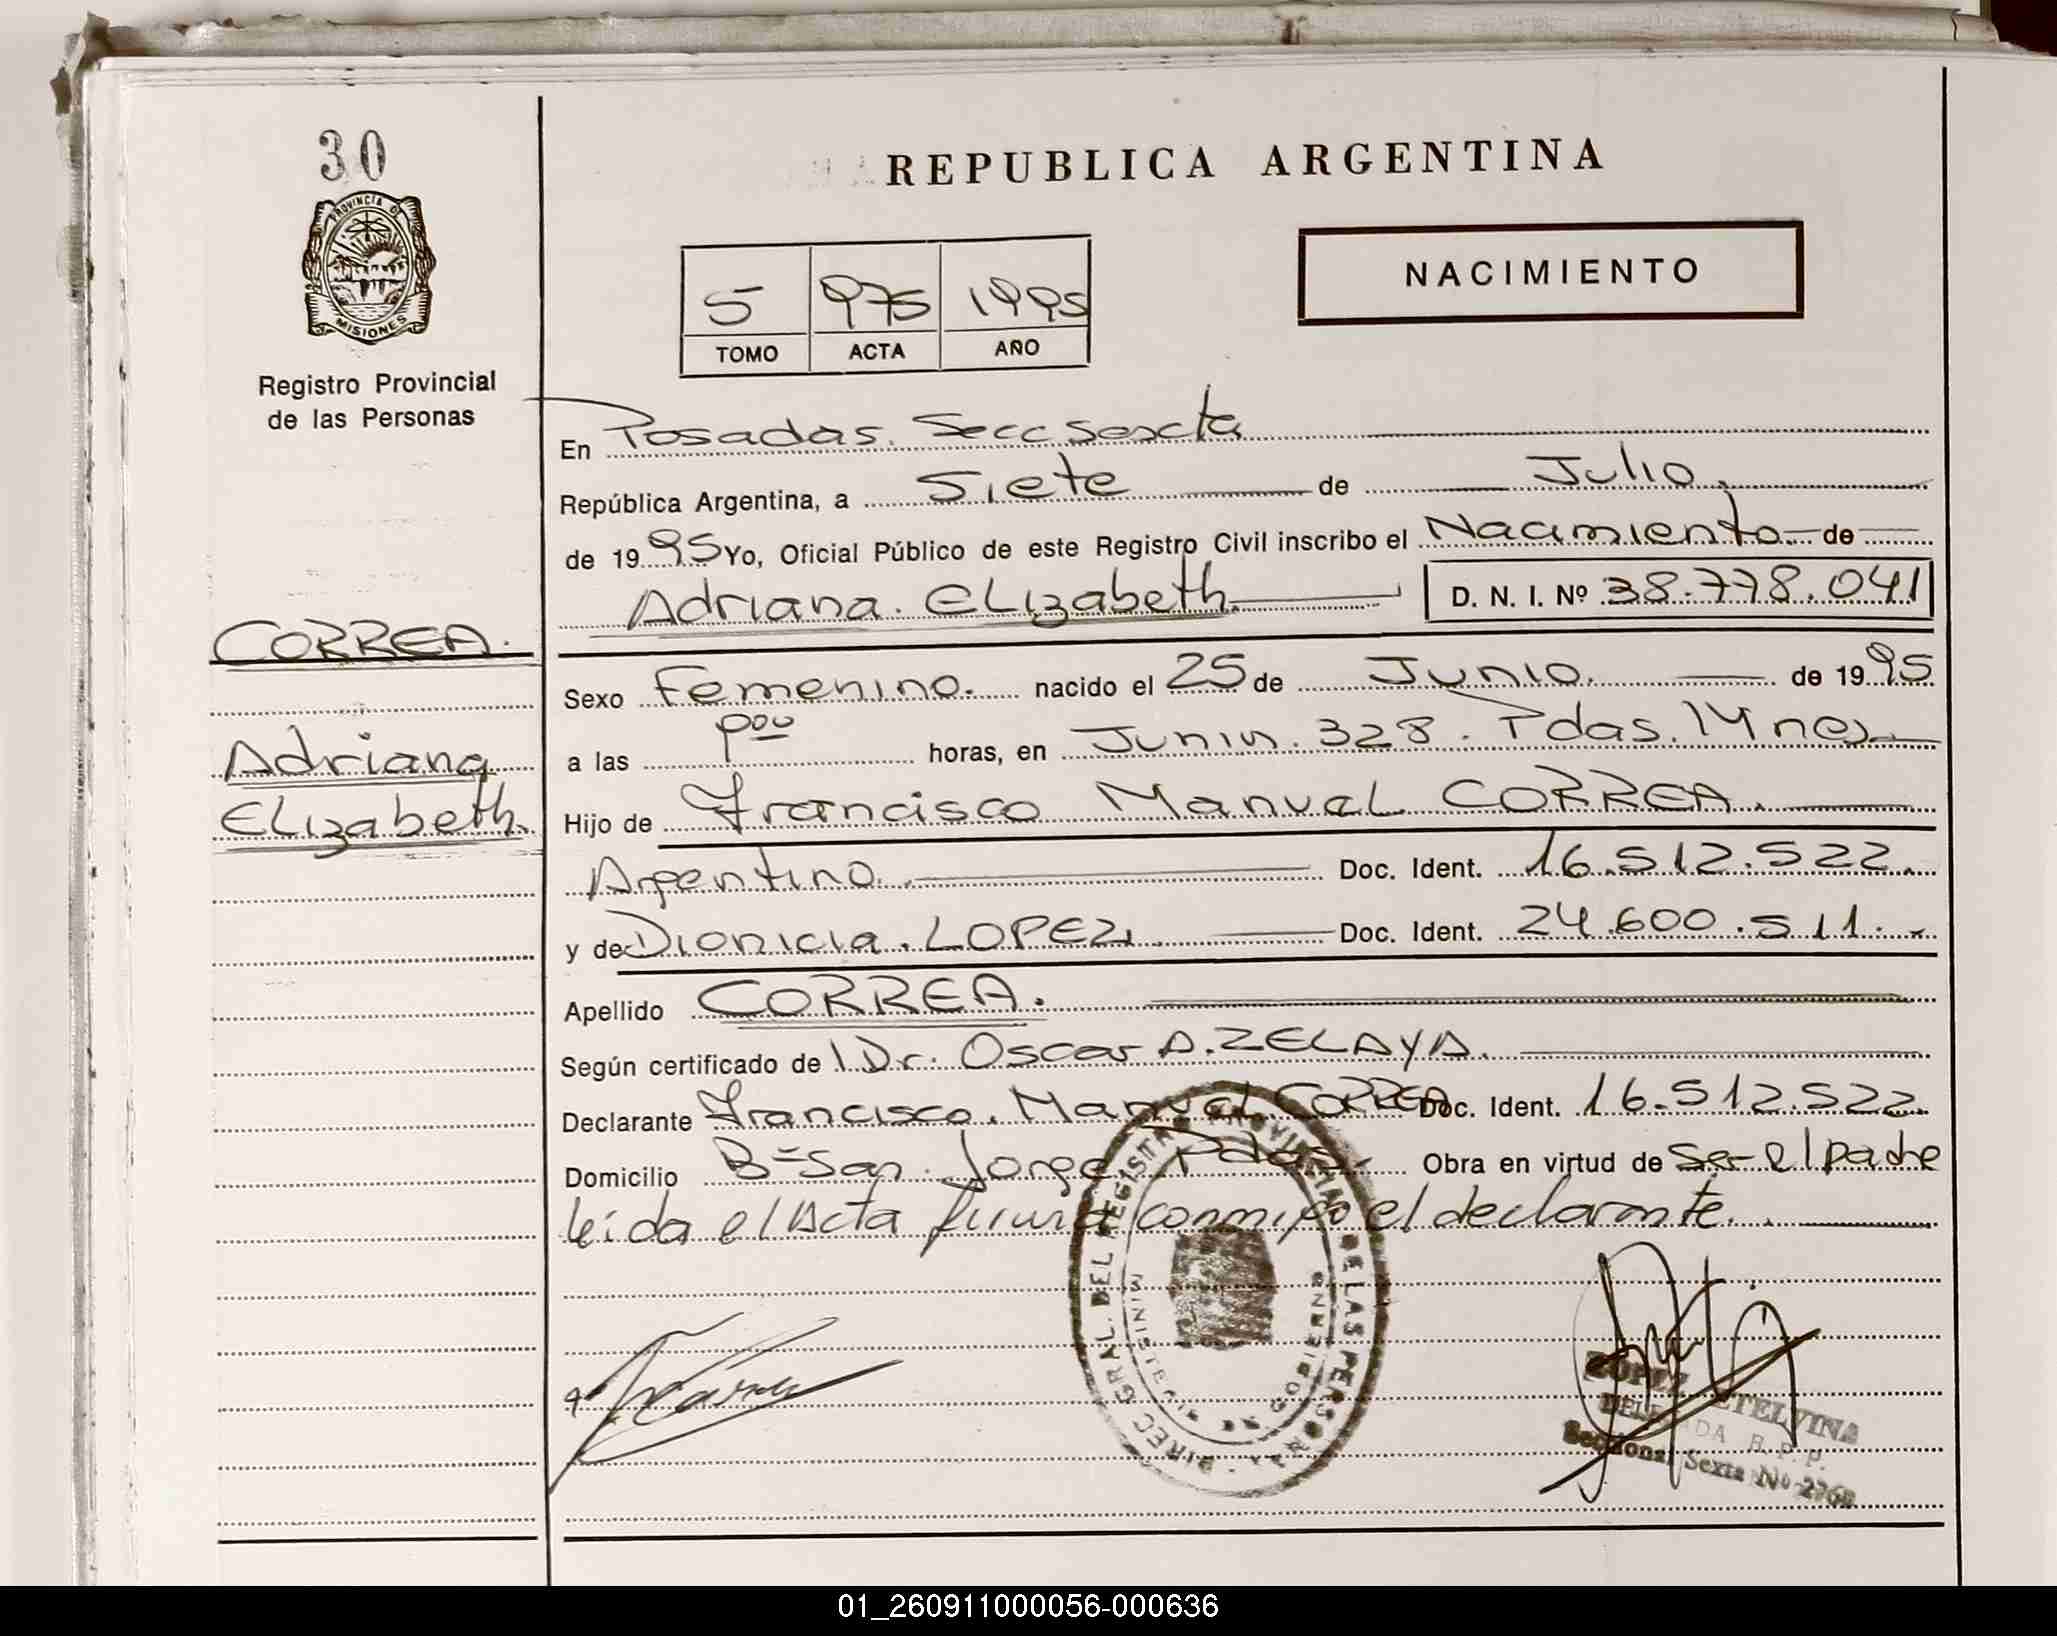 30
PROVINCIA DE
MISIONES
Registro Provincial
de las Personas
REPUBLICA ARGENTINA
NACIMIENTO
5 975 1995
TOMO ACTA AÑO
En Posadas. Secc Sexta
República Argentina, a Siete de Julio.
de 1995 Yo, Oficial Público de este Registro Civil inscribo el Nacimiento de
Adriana. ELizabeth. D. N. I. Nº 38.778.041
CORREA.
Adriana
ELizabeth.
Sexo Femenino. nacido el 25 de Junio. de 1995
a las horas, en Junin. 328. Pdas.
Hijo de Francisco Manuel CORREA.
Argentino. Doc. Ident. 16.512.522.
y de Dionicia. LOPEZ Doc. Ident. 24.600.511.
Apellido CORREA.
Según certificado de Dr. Oscar A. ZELAYA.
Declarante Francisco. Manuel CORREA Doc. Ident. 16.512.522
Domicilio Bº San Jorge Pdas. Obra en virtud de Ser el padre
leida el Acta firma conmigo el declarante.
DIREC. GRAL. DEL REGISTRO PROVINCIAL DE LAS PERSONAS
MINISTERIO DE GOBIERNO
LOPEZ ETELVINA
DELEGADA R. P. P.
Seccional Sexta Nº
01_260911000056-000636